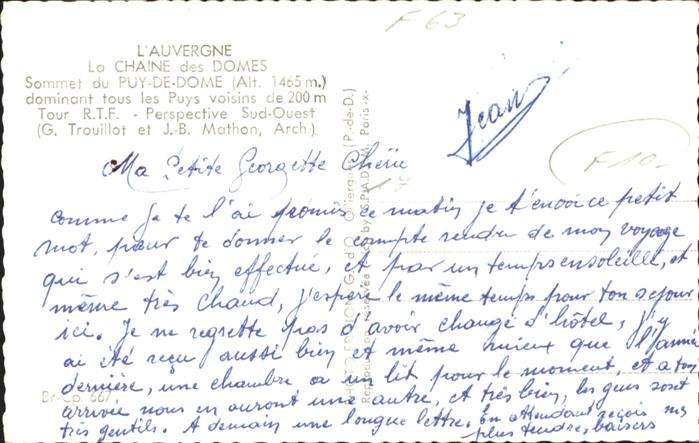 F 63
L'AUVERGNE
La CHAINE des DOMES
Sommet du PUY-DE-DOME (Alt. 1465 m.)
dominant tous les Puys voisins de 200 m
Tour R.T.F. - Perspective Sud-Ouest
(G. Trouillot et J.-B. Mathon, Arch.)
Jean
F10-
Ma Petite Georgette Chérie
comme je te l'ai promis ce matin je t'envoi ce petit
mot, pour te donner le compte rendu de mon voyage
qui s'est bien effectué, et par un temps ensoleillé, et
même très chaud, j'espère le même temps pour ton sejour
ici. Je ne regrette pas d'avoir changé d'hôtel, j'y
ai été reçu aussi bien et même mieux que l'année
dernière, une chambre a un lit pour le moment, et a ton
arrivée nous en aurons une autre, et très bien, les gens sont
très gentils. A demain une longue lettre. En attendant reçois mes
plus tendres baisers
Br-Cp 667
(P.-de-D.)
Paris-x-